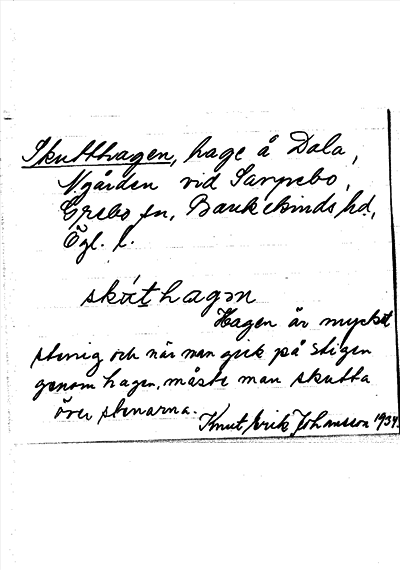 Skutthagen, hage å Dala,
N.gården vid Sarpebo,
Grebo sn, Bankekinds hd.,
Ögl. l.
skúthagən
Hagen är mycket
stenig och när man gick på stigen
genom hagen, måste man skutta
över stenarna.
Knut Erik Johansson 1934.